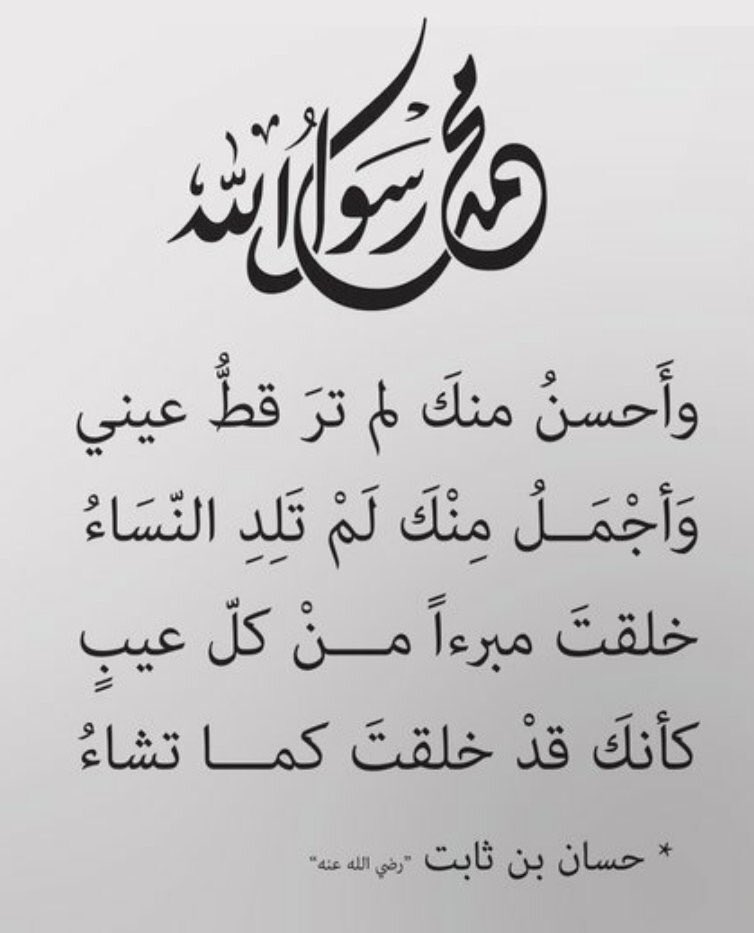 محمد رسول الله
وأَحسنُ منكَ لم ترَ قطُّ عيني
وَأجْمَــلُ مِنْكَ لَمْ تَلِدِ النّسَاءُ
خلقتَ مبرءاً مــنْ كلّ عيبٍ
كأنكَ قدْ خلقتَ كمــا تشاءُ
* حسان بن ثابت "رضي الله عنه"